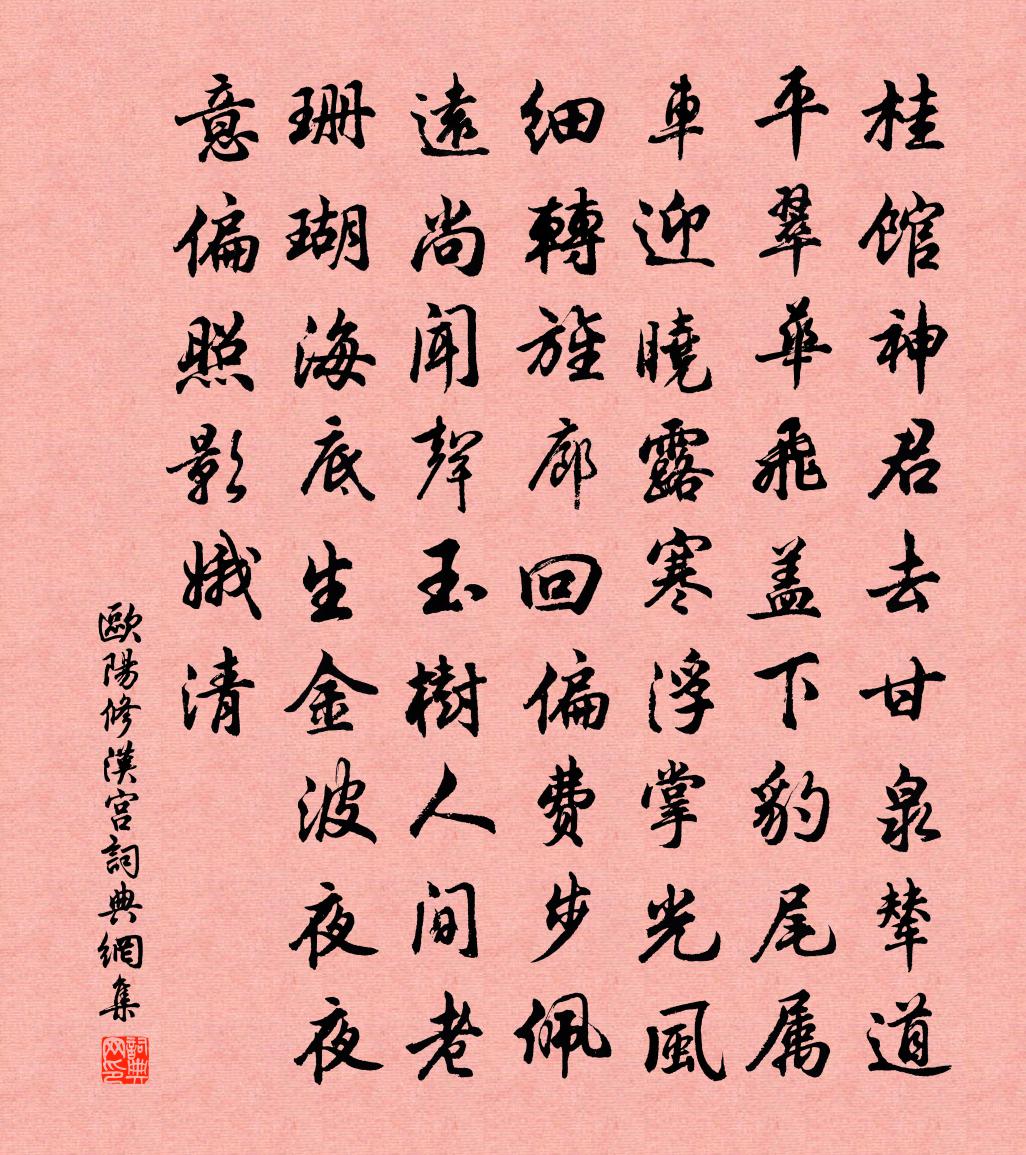 桂館神君去甘泉輦道
平翠華飛盖下豹尾属
車迎曉露寒浮掌光風
細轉旌廊回偏費步佩
遠尚聞聲玉樹人間老
珊瑚海底生金波夜夜
意偏照影娥清
歐陽修漢宮詞典網集
詞典网印